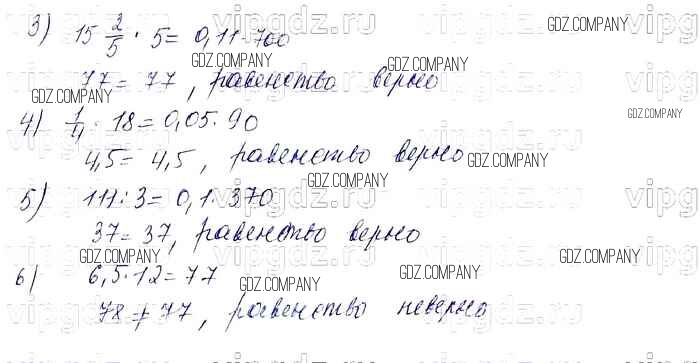 3) 15 2/5 · 5 = 0,11 · 700
77 = 77, равенство верно
4) 1/4 · 18 = 0,05 · 90
4,5 = 4,5, равенство верно
5) 111 : 3 = 0,1 · 370
37 = 37, равенство верно
6) 6,5 · 12 = 77
78 ≠ 77, равенство неверно
GDZ.COMPANY
GDZ.COMPANY
GDZ.COMPANY
GDZ.COMPANY
GDZ.COMPANY
GDZ.COMPANY
GDZ.COMPANY
GDZ.COMPANY
GDZ.COMPANY
GDZ.COMPANY
GDZ.COMPANY
vipgdz.ru